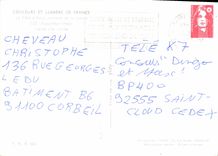 COULEURS ET LUMIERE DE FRANCE
CHEVEAU
CHRISTOPHE
136 RUE GEORGES
LE DU
BATIMENT B6
91100 CORBEIL
TÉLÉ K7
Concours
et
BP400
92555 SAINT-
CLOUD CEDEX